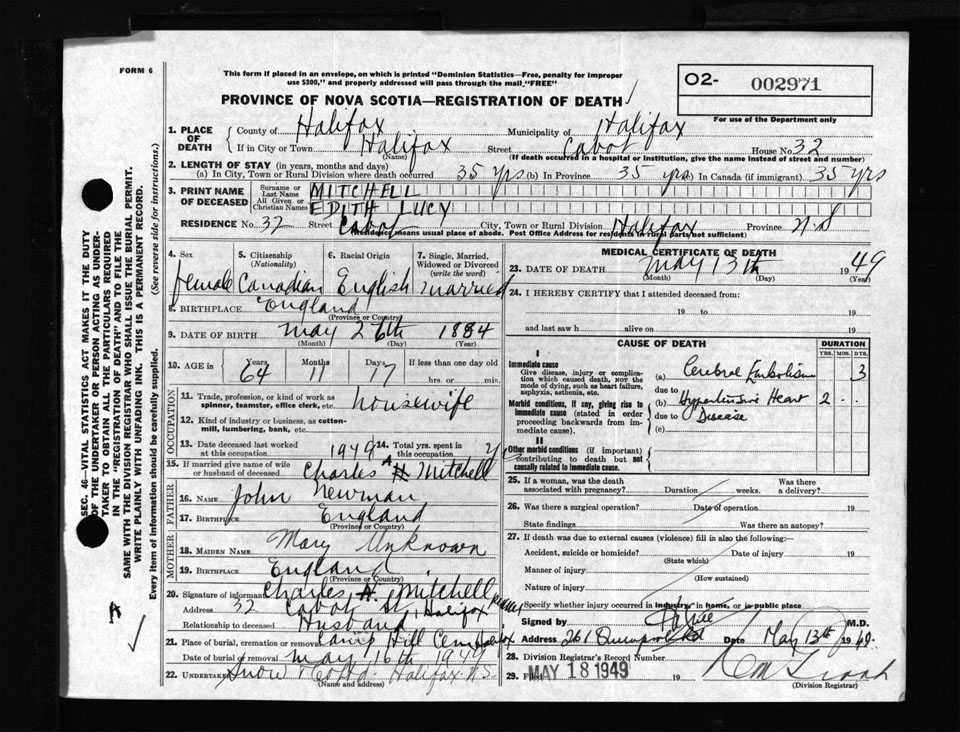 FORM 6
This form if placed in an envelope, on which is printed "Dominion Statistics—Free, penalty for improper
use $300," and properly addressed will pass through the mail "FREE"
PROVINCE OF NOVA SCOTIA—REGISTRATION OF DEATH
O2- 002971
For use of the Department only
1. PLACE OF DEATH County of Halifax Municipality of Halifax
If in City or Town Halifax (Name) Street Cabot House No 32
(If death occurred in a hospital or institution, give the name instead of street and number)
2. LENGTH OF STAY (in years, months and days)
(a) In City, Town or Rural Division where death occurred 35 yrs (b) In Province 35 yrs (c) In Canada (if immigrant) 35 yrs
3. PRINT NAME OF DECEASED Surname or Last Name MITCHELL
All Given or Christian Names EDITH LUCY
RESIDENCE No 32 Street Cabot City, Town or Rural Division Halifax Province N.S
(Residence means usual place of abode. Post Office Address for residents in rural parts not sufficient)
4. Sex 5. Citizenship (Nationality) 6. Racial Origin 7. Single, Married, Widowed or Divorced (write the word)
female Canadian English married
8. BIRTHPLACE England
(Province or Country)
9. DATE OF BIRTH May 26th 1884
(Month) (Day) (Year)
10. AGE in Years Months Days If less than one day old
64 11 17 hrs. or min.
OCCUPATION
11. Trade, profession, or kind of work as spinner, teamster, office clerk, etc. housewife
12. Kind of industry or business, as cotton-mill, lumbering, bank, etc.
13. Date deceased last worked at this occupation 1949 14. Total yrs. spent in this occupation
15. If married give name of wife or husband of deceased Charles A H Mitchell
FATHER
16. NAME John Newman
17. BIRTHPLACE England
(Province or Country)
MOTHER
18. MAIDEN NAME Mary Unknown
19. BIRTHPLACE England
(Province or Country)
20. Signature of informant Charles H. Mitchell
Address 32 Cabot St, Halifax
Relationship to deceased Husband
21. Place of burial, cremation or removal Camp Hill Cem Halifax
Date of burial or removal May 16th 1949
22. Undertaker Snow Halifax N.S
(Name and address)
MEDICAL CERTIFICATE OF DEATH
23. DATE OF DEATH May 13th 1949
(Month) (Day) (Year)
24. I HEREBY CERTIFY that I attended deceased from:
19 to 19
and last saw h alive on 19
CAUSE OF DEATH DURATION
YRS. MOS. DYS.
I
Immediate cause
Give disease, injury or complication which caused death, NOT the mode of dying, such as heart failure, asphyxia, asthenia, etc.
(a) Cerebral Embolism 3
due to
Morbid conditions, if any, giving rise to immediate cause (stated in order proceeding backwards from immediate cause).
(b) Hypertensive Heart 2 - -
due to Disease
(c)
II
Other morbid conditions (if important) contributing to death but not causally related to immediate cause.
25. If a woman, was the death associated with pregnancy? Duration weeks. Was there a delivery?
26. Was there a surgical operation? Date of operation 19
State findings Was there an autopsy?
27. If death was due to external causes (violence) fill in also the following:—
Accident, suicide or homicide? Date of injury 19
(State which)
Manner of injury
(How sustained)
Nature of injury
Specify whether injury occurred in industry, in home, or in public place
Signed by M.D.
Address 261 Quinpool Rd Date May 13th 1949.
28. Division Registrar's Record Number
29. Filed MAY 18 1949 19
(Division Registrar)
SEC. 46—VITAL STATISTICS ACT MAKES IT THE DUTY
OF THE UNDERTAKER OR PERSON ACTING AS UNDER-
TAKER TO OBTAIN ALL THE PARTICULARS REQUIRED
IN THE "REGISTRATION OF DEATH" AND TO FILE THE
SAME WITH THE DIVISION REGISTRAR WHO SHALL ISSUE THE BURIAL PERMIT.
WRITE PLAINLY WITH UNFADING INK. THIS IS A PERMANENT RECORD.
Every item of information should be carefully supplied. (See reverse side for instructions.)